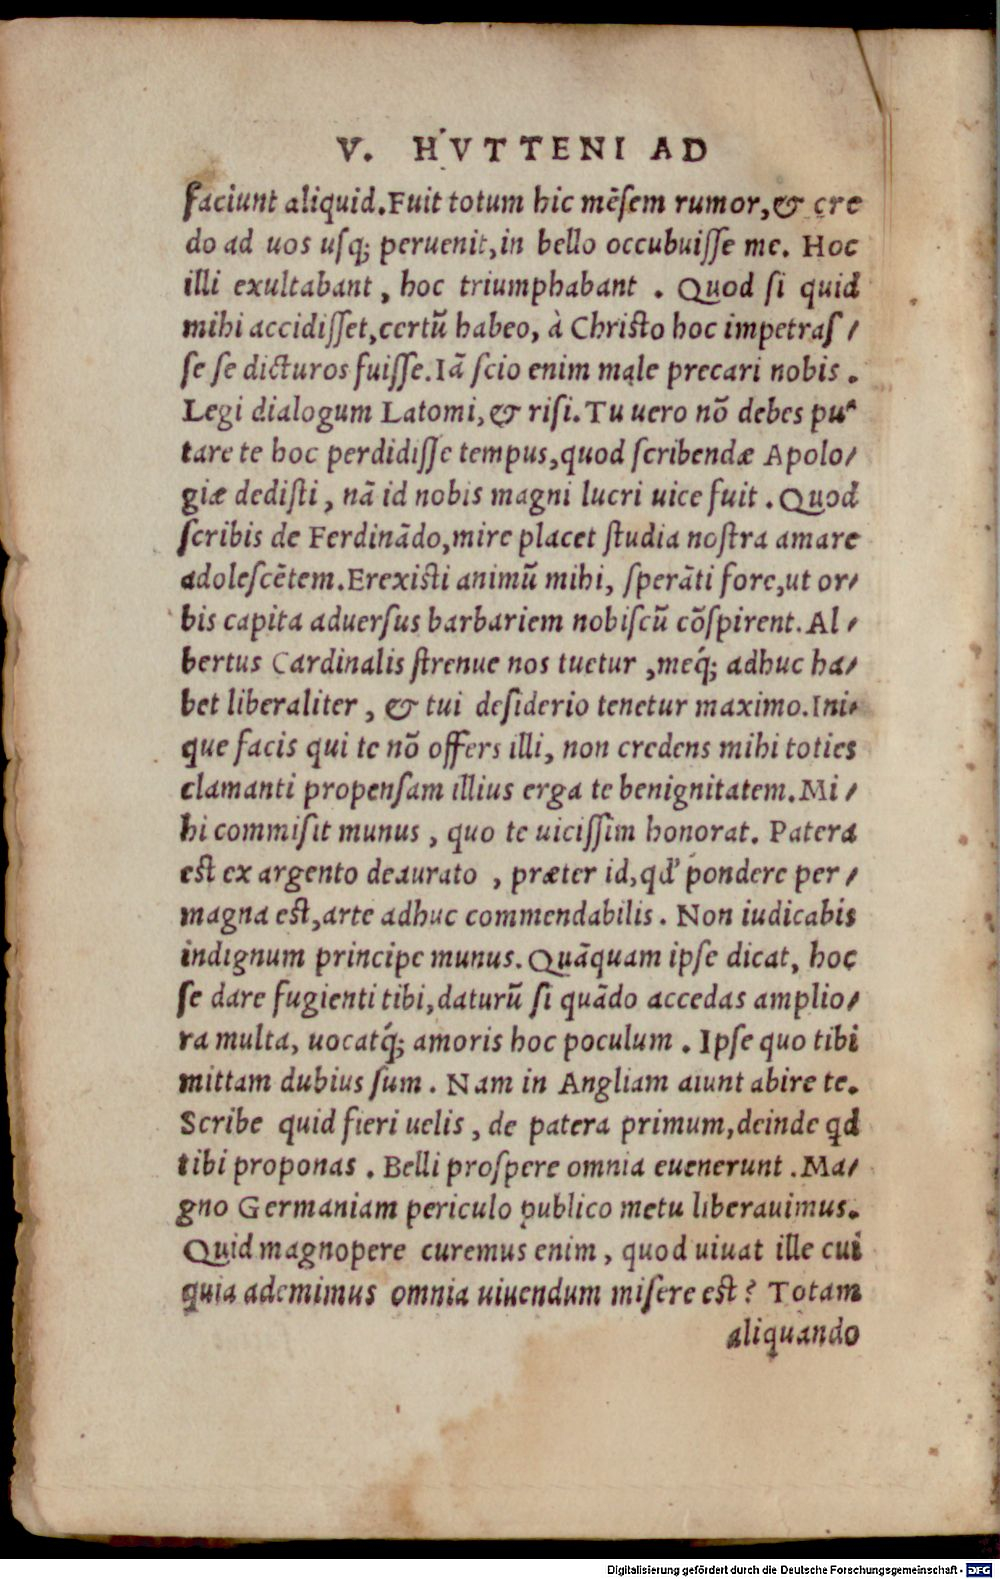 V. HVTTENI AD
faciunt aliquid. Fuit totum hic mēſem rumor, & cre
do ad uos uſq; peruenit, in bello occubuiſſe me. Hoc
illi exultabant, hoc triumphabant. Quod ſi quid
mihi accidiſſet, certū habeo, à Chriſto hoc impetraſ/
ſe ſe dicturos fuiſſe. Iā ſcio enim male precari nobis.
Legi dialogum Latomi, & riſi. Tu uero nō debes pu/
tare te hoc perdidiſſe tempus, quod ſcribendæ Apolo/
giæ dediſti, nā id nobis magni lucri uice fuit. Quod
ſcribis de Ferdinādo, mire placet ſtudia noſtra amare
adoleſcētem. Erexiſti animū mihi, ſperāti fore, ut or/
bis capita aduerſus barbariem nobiſcū cōſpirent. Al/
bertus Cardinalis ſtrenue nos tuetur, meq́; adhuc ha/
bet liberaliter, & tui deſiderio tenetur maximo. Ini/
que facis qui te nō offers illi, non credens mihi toties
clamanti propenſam illius erga te benignitatem. Mi/
hi commiſit munus, quo te uiciſſim honorat. Patera
eſt ex argento deaurato, præter id, qd' pondere per/
magna eſt, arte adhuc commendabilis. Non iudicabis
indignum principe munus. Quāquam ipſe dicat, hoc
ſe dare fugienti tibi, daturū ſi quādo accedas amplio/
ra multa, uocatq́; amoris hoc poculum. Ipſe quo tibi
mittam dubius ſum. Nam in Angliam aiunt abire te.
Scribe quid fieri uelis, de patera primum, deinde qd
tibi proponas. Belli proſpere omnia euenerunt. Ma/
gno Germaniam periculo publico metu liberauimus.
Quid magnopere curemus enim, quod uiuat ille cui
quia ademimus omnia uiuendum miſere eſt? Totam
aliquando
Digitalisierung gefördert durch die Deutsche Forschungsgemeinschaft - DFG